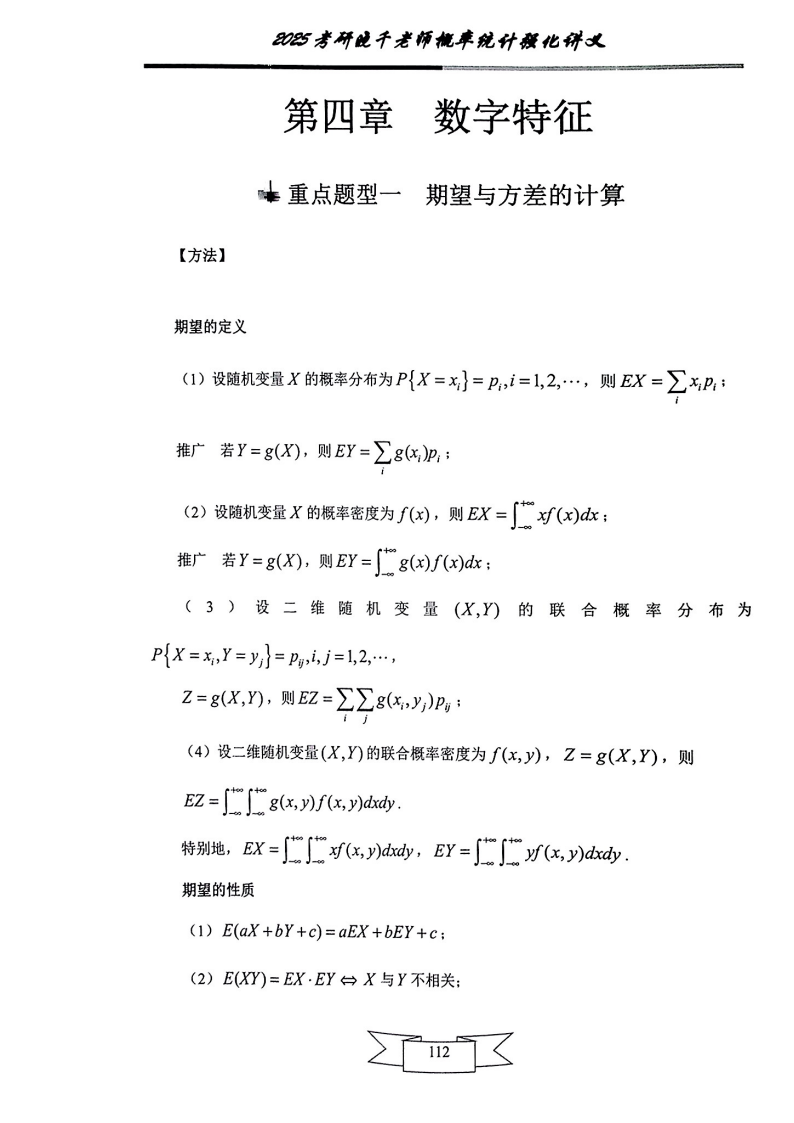 2025考研晓千老师概率统计强化讲义
第四章 数字特征
重点题型一 期望与方差的计算
【方法】
期望的定义
（1）设随机变量 X 的概率分布为 P{X = x_i} = p_i, i = 1, 2, ⋯，则 EX = ∑_i x_i p_i；
推广 若 Y = g(X)，则 EY = ∑_i g(x_i)p_i；
（2）设随机变量 X 的概率密度为 f(x)，则 EX = ∫_{-∞}^{+∞} xf(x)dx；
推广 若 Y = g(X)，则 EY = ∫_{-∞}^{+∞} g(x)f(x)dx；
（3）设二维随机变量 (X,Y) 的联合概率分布为
P{X = x_i, Y = y_j} = p_{ij}, i, j = 1, 2, ⋯，
Z = g(X,Y)，则 EZ = ∑_i ∑_j g(x_i, y_j)p_{ij}；
（4）设二维随机变量 (X,Y) 的联合概率密度为 f(x, y)，Z = g(X,Y)，则
EZ = ∫_{-∞}^{+∞} ∫_{-∞}^{+∞} g(x, y)f(x, y)dxdy.
特别地，EX = ∫_{-∞}^{+∞} ∫_{-∞}^{+∞} xf(x, y)dxdy，EY = ∫_{-∞}^{+∞} ∫_{-∞}^{+∞} yf(x, y)dxdy.
期望的性质
（1）E(aX + bY + c) = aEX + bEY + c；
（2）E(XY) = EX · EY ⇔ X 与 Y 不相关；
112